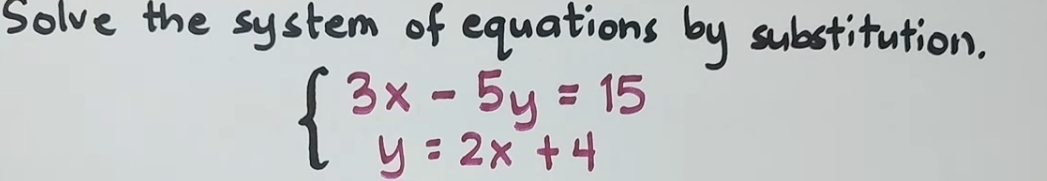 Solve the system of equations by substitution.
3x - 5y = 15
y = 2x + 4